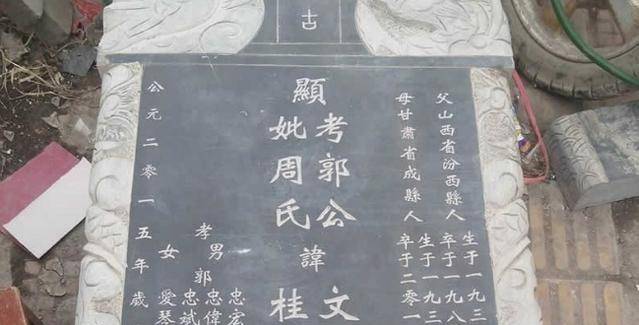 古
父山西省汾西縣人
生于一九三
卒于一九八
母甘肅省成縣人
生于一九三
卒于二零一
顯
考郭公
妣周氏
諱
文
桂
孝
男郭
忠宏
忠偉
忠斌
女愛琴
公元二零一五年歲